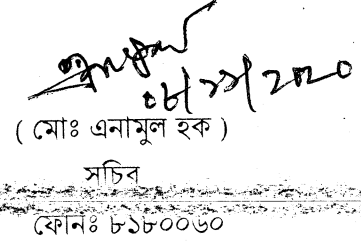 ০৮/১১/২০২০
( মোঃ এনামুল হক )
সচিব
ফোনঃ ৮১৮০০৬০